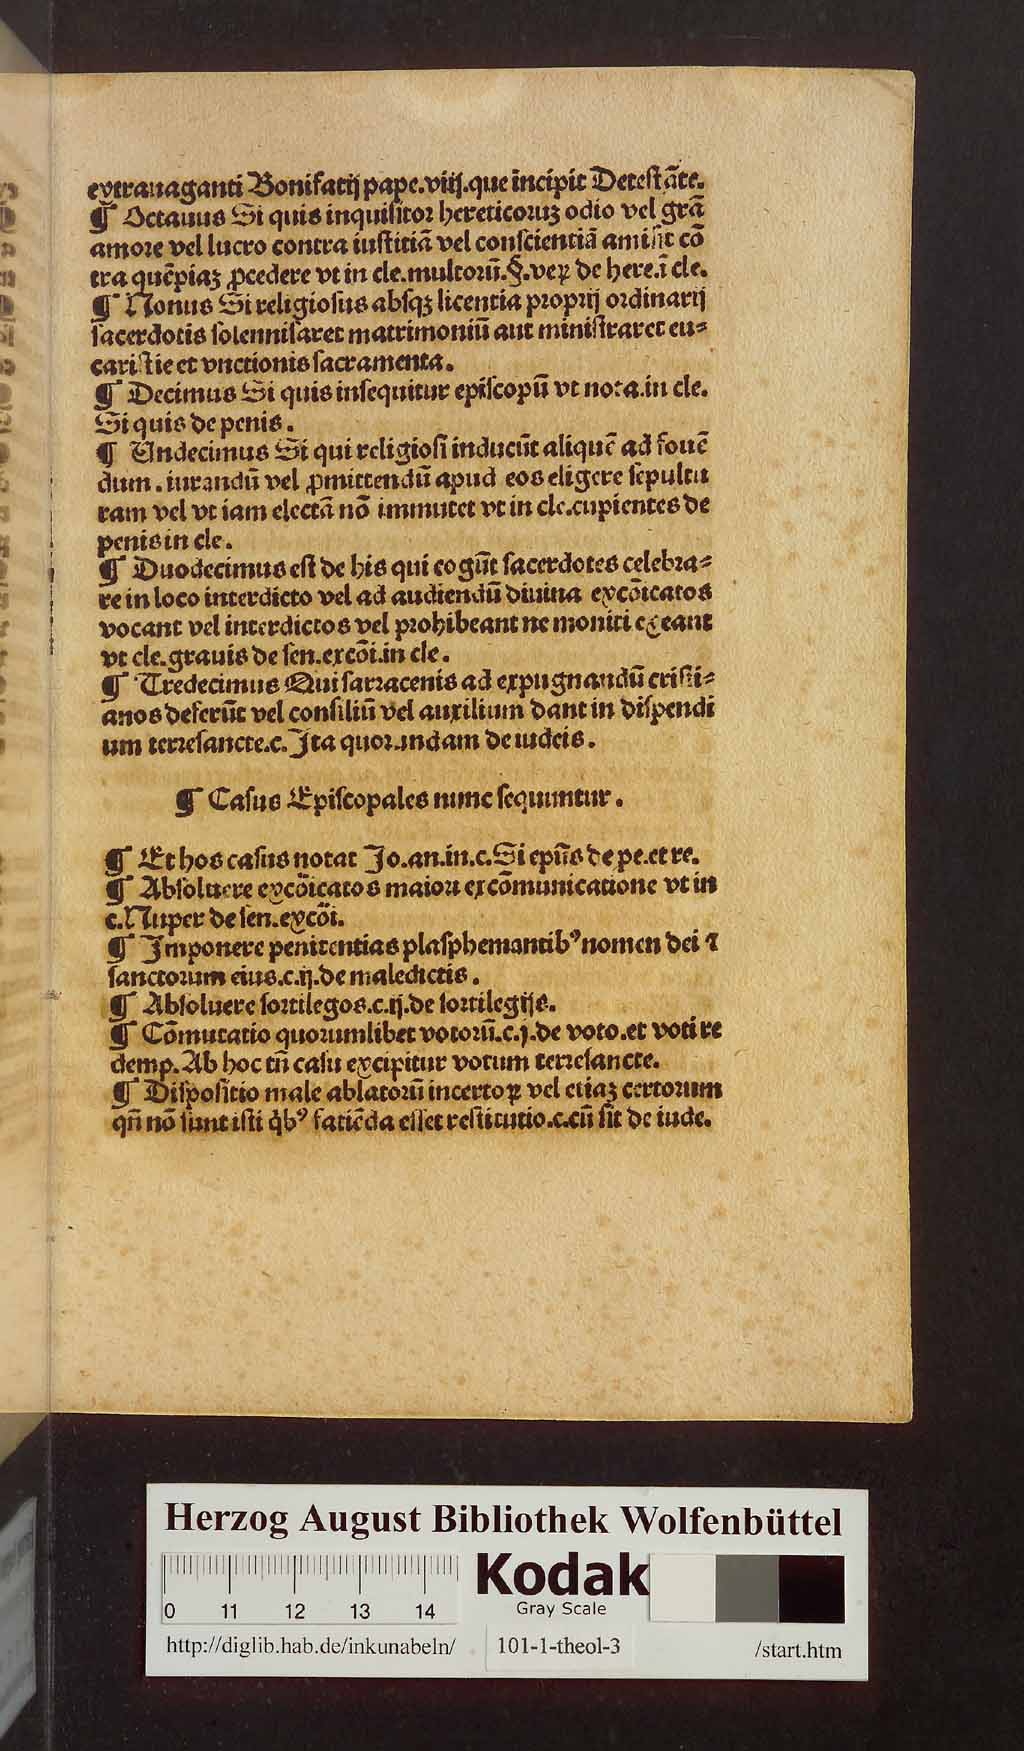 extrauaganti Bonifatij pape.viij.que incipit Detestāte.
¶ Octauus Si quis inquisitor hereticoruꝫ odio vel grā
amore vel lucro contra iustitiā vel conscientiā amisit cō
tra quēpiaꝫ ꝓcedere vt in cle.multorū.§.veꝝ de here.ī cle.
¶ Nonus Si religiosus absqꝫ licentia proprij ordinarij
sacerdotis solennisaret matrimoniū aut ministraret eu⸗
caristie et vnctionis sacramenta.
¶ Decimus Si quis insequitur episcopū vt nota.in cle.
Si quis de penis.
¶ Undecimus Si qui religiosi inducūt aliquē ad fouē
dum.iurandū vel ꝓmittendū apud eos eligere sepultu
ram vel vt iam electā nō immutet vt in cle.cupientes de
penis in cle.
¶ Duodecimus est de his qui cogūt sacerdotes celebra⸗
re in loco interdicto vel ad audiendū diuina excōicatos
vocant vel interdictos vel prohibeant ne moniti exeant
vt cle.grauis de sen.excōi.in cle.
¶ Tredecimus Qui sarracenis ad expugnandū cristi⸗
anos deferūt vel consiliū vel auxilium dant in dispendi
um terresancte.c.Ita quorundam de iudeis.
¶ Casus Episcopales nunc sequuntur.
¶ Et hos casus notat Jo.an.in.c.Si epūs de pe.et re.
¶ Absoluere excōicatos maiori excōmunicatione vt in
c.Nuper de sen.excōi.
¶ Imponere penitentias plasphemantibꝰ nomen dei ⁊
sanctorum eius.c.ij.de maledictis.
¶ Absoluere sortilegos.c.ij.de sortilegijs.
¶ Cōmutatio quorumlibet votorū.c.j.de voto.et voti re
demp.Ab hoc tn̄ casu excipitur votum terresancte.
¶ Dispositio male ablatorū incertoꝝ vel etiaꝫ certorum
qn̄ nō sunt isti q̇bꝰ fatiēda esset restitutio.c.cū sit de iude.
Herzog August Bibliothek Wolfenbüttel
0 11 12 13 14
Kodak
Gray Scale
http://diglib.hab.de/inkunabeln/ 101-1-theol-3 /start.htm